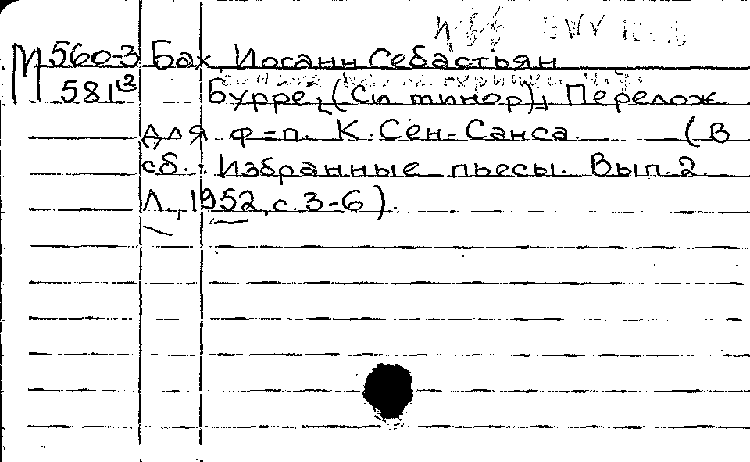 М 560-3 Бах, Иоганн Себастьян
581 Бурре (Си минор), Перелож.
для ф=п. К. Сен-Санса (В
сб.: Избранные пьесы. Вып. 2
Л., 1952, с. 3-6).